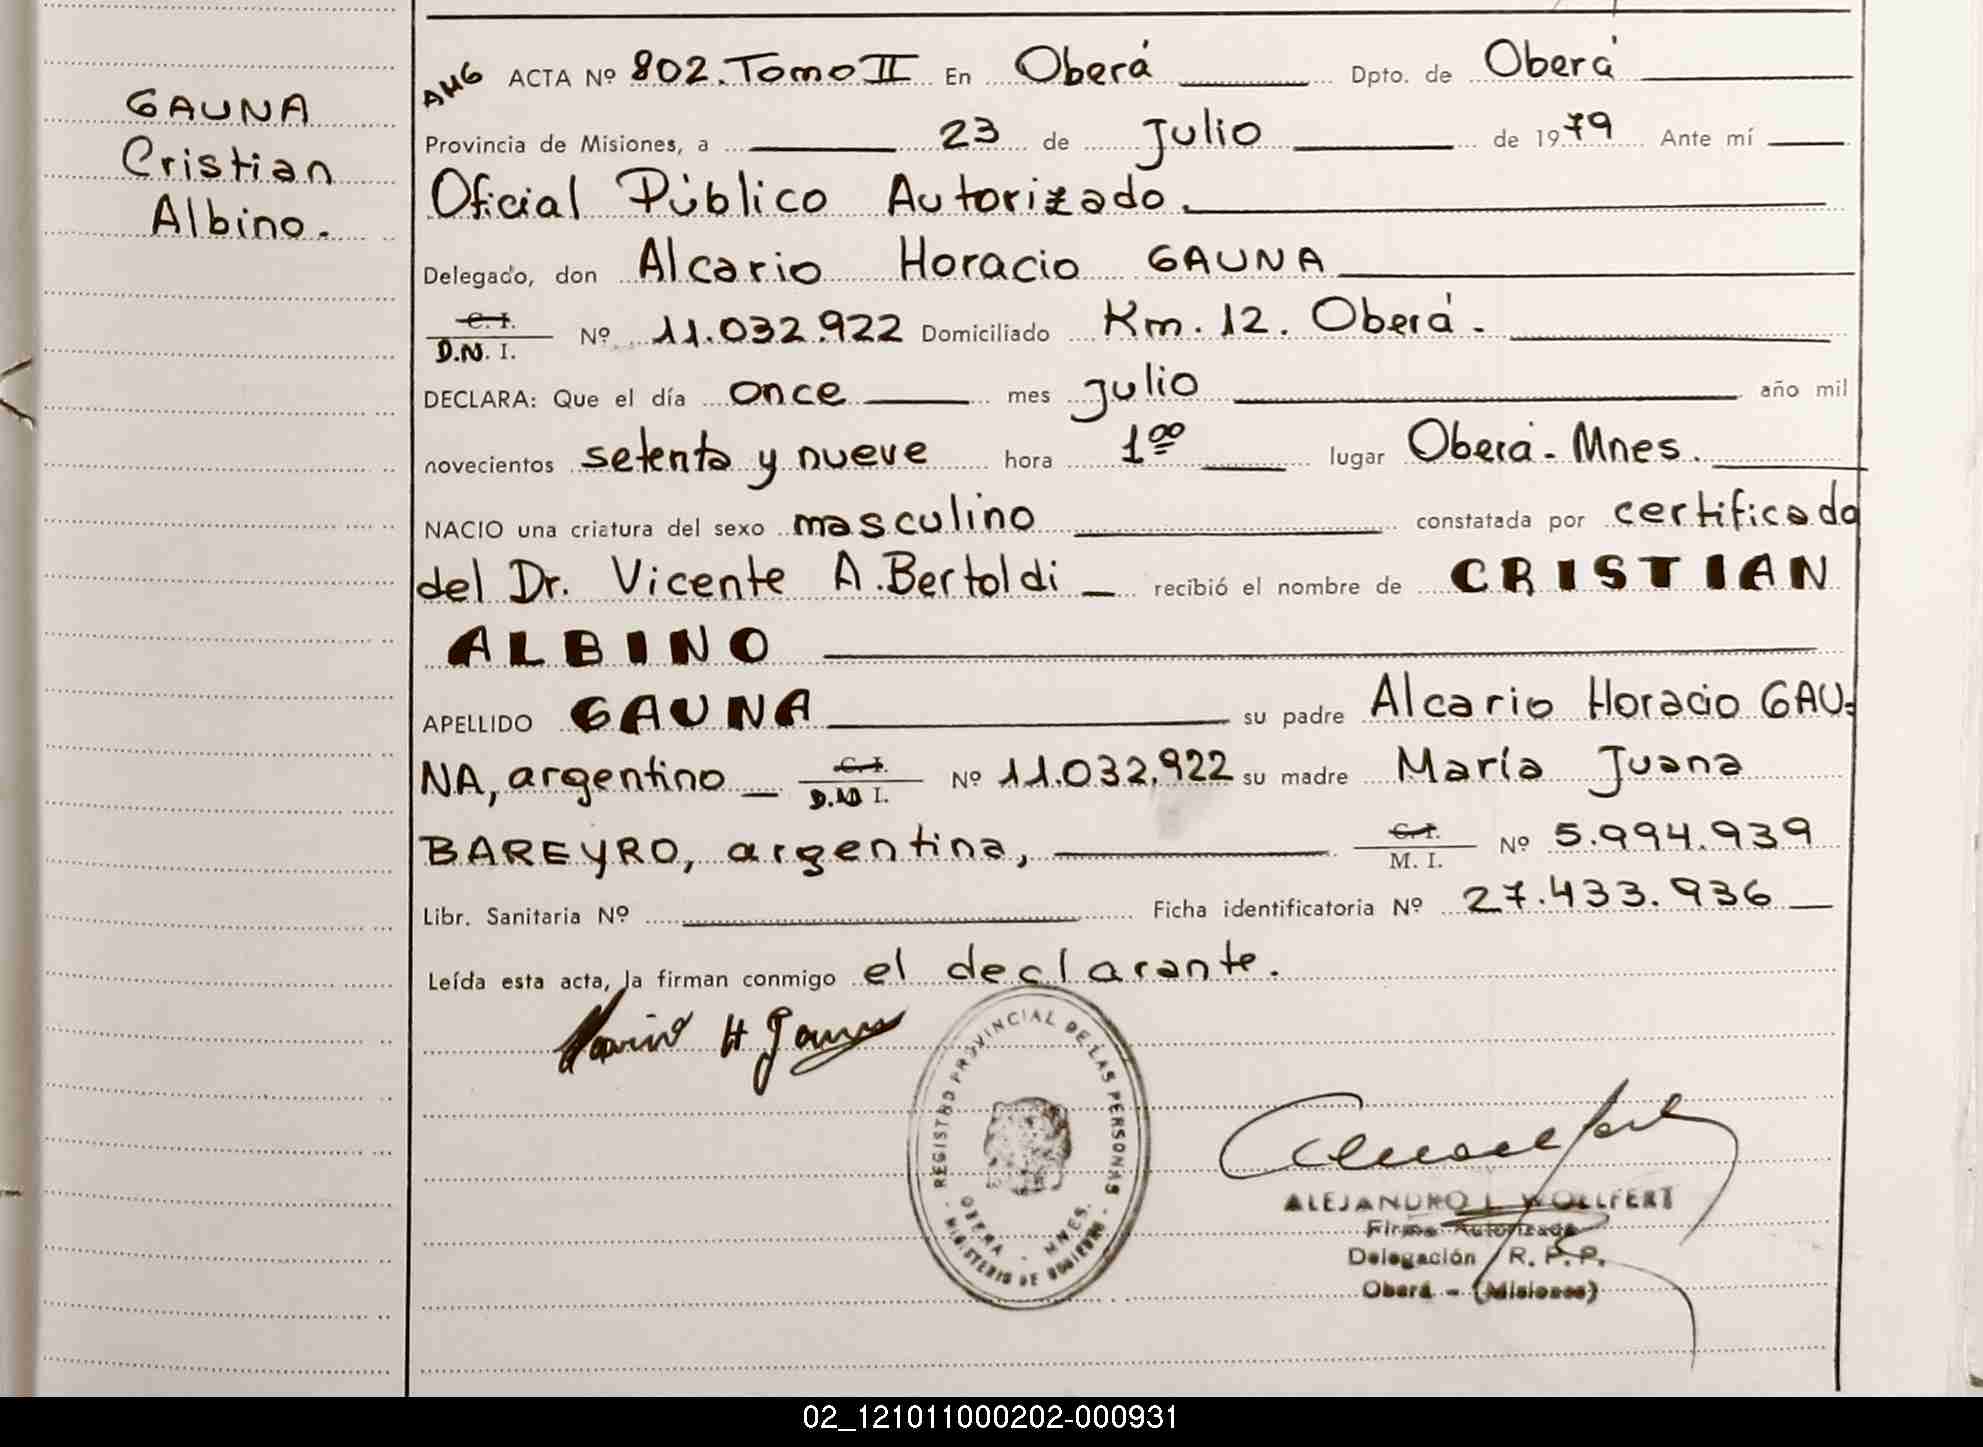 GAUNA
Cristian
Albino.
AMG ACTA Nº 802. Tomo II En Oberá Dpto. de Oberá
Provincia de Misiones, a 23 de Julio de 1979 Ante mí
Oficial Público Autorizado.
Delegado, don Alcario Horacio GAUNA
C. I.
D.N. I. Nº 11.032.922 Domiciliado Km. 12. Oberá.
DECLARA: Que el día once mes julio año mil
novecientos setenta y nueve hora 1ºº lugar Oberá - Mnes.
NACIO una criatura del sexo masculino constatada por certificado
del Dr. Vicente A. Bertoldi recibió el nombre de CRISTIAN
ALBINO
APELLIDO GAUNA su padre Alcario Horacio GAU-
NA, argentino C. I. D.N I. Nº 11.032.922 su madre María Juana
BAREYRO, argentina, C. I. M. I. Nº 5.994.939
Libr. Sanitaria Nº Ficha identificatoria Nº 27.433.936
Leída esta acta, la firman conmigo el declarante.
H Gauna
REGISTRO PROVINCIAL DE LAS PERSONAS
OBERA - MNES.
- MINISTERIO DE GOBIERNO -
ALEJANDRO L. WOLLFERT
Firma Autorizada
Delegación R. P. P.
Oberá - (Misiones)
02_121011000202-000931